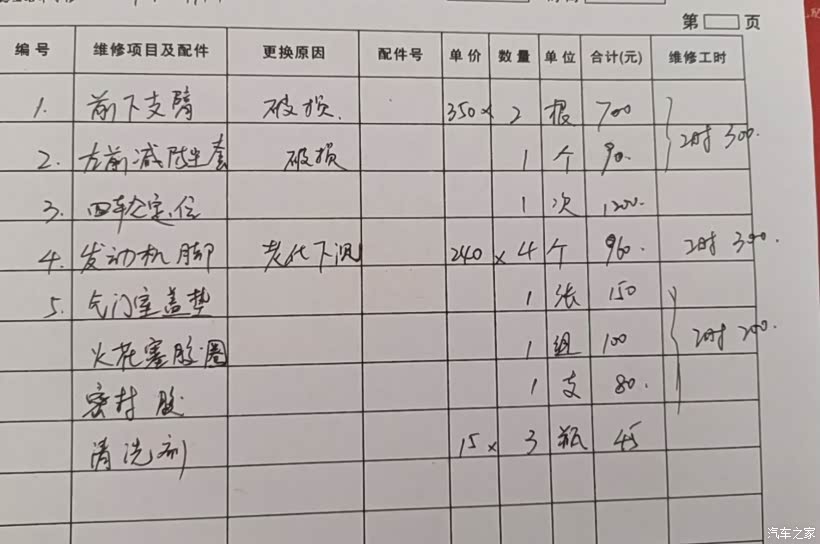 第 页
编号 维修项目及配件 更换原因 配件号 单价 数量 单位 合计(元) 维修工时
1. 前下支臂 破损. 350 × 2 根 700
2. 左前减震座套 破损 1 个 90. 2时 300.
3. 四轮定位 1 次 1200.
4. 发动机脚 老化下沉 240 × 4 个 960. 2时 300.
5. 气门室盖垫 1 张 150
火花塞胶圈 1 组 100 2时 200.
密封胶 1 支 80.
清洗剂 15 × 3 瓶 45
汽车之家